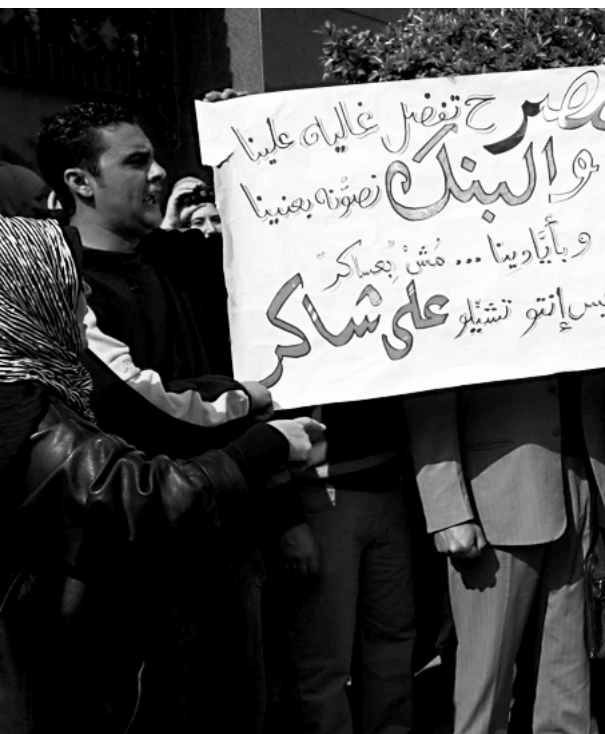 مصر ح تفضل غاليه علينا
والبنك نصوُنه بعنينا
وبأيَّادينا ... مُشْ "بِعساكر"
بس إنتو تشيَّلو على شاكر